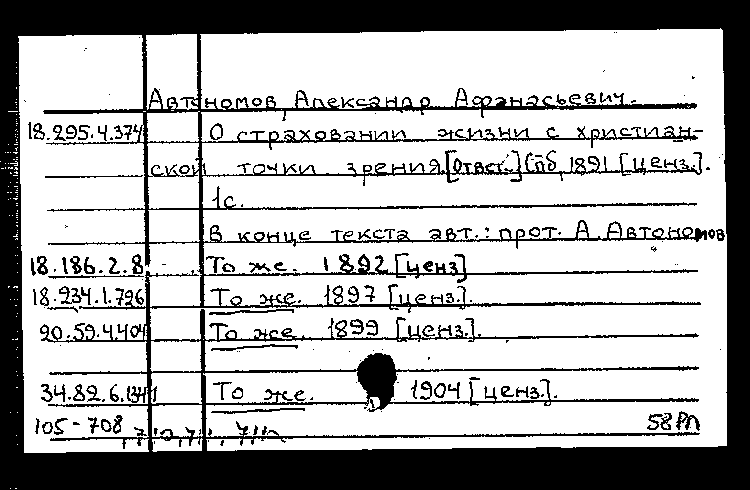 Автономов, Александр Афанасьевич.
18.295.4.374 О страховании жизни с христиан-
ской точки зрения. [Ответ.] Спб, 1891 [ценз.].
1с.
В конце текста авт.: прот. А. Автономов
18.186.2.8 То же. 1892 [ценз]
18.234.1.796 То же. 1897 [ценз.].
20.59.4.404 То же. 1899 [ценз.].
34.82.6. То же. 1904 [ценз.].
105-708 58